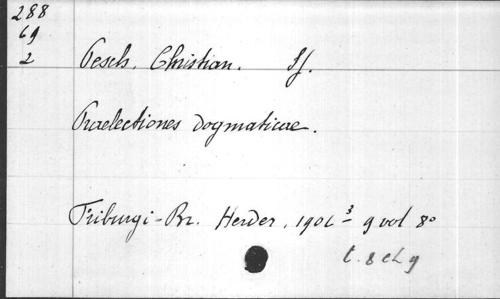 288
69
2
Pesch, Christian. Sj.
Praelectiones dogmaticae.
Friburgi-Br. Herder, 1906 3 - 9 vol 8o
t. 8 et 9